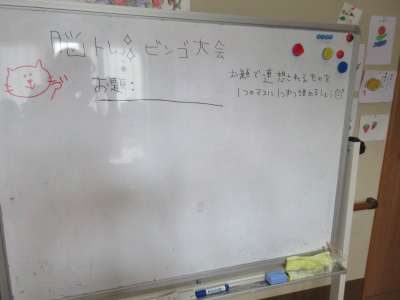 脳トレ!ビンゴ大会
お題:
お題で連想されるものを
1つのマスに1つずつ埋めましょう